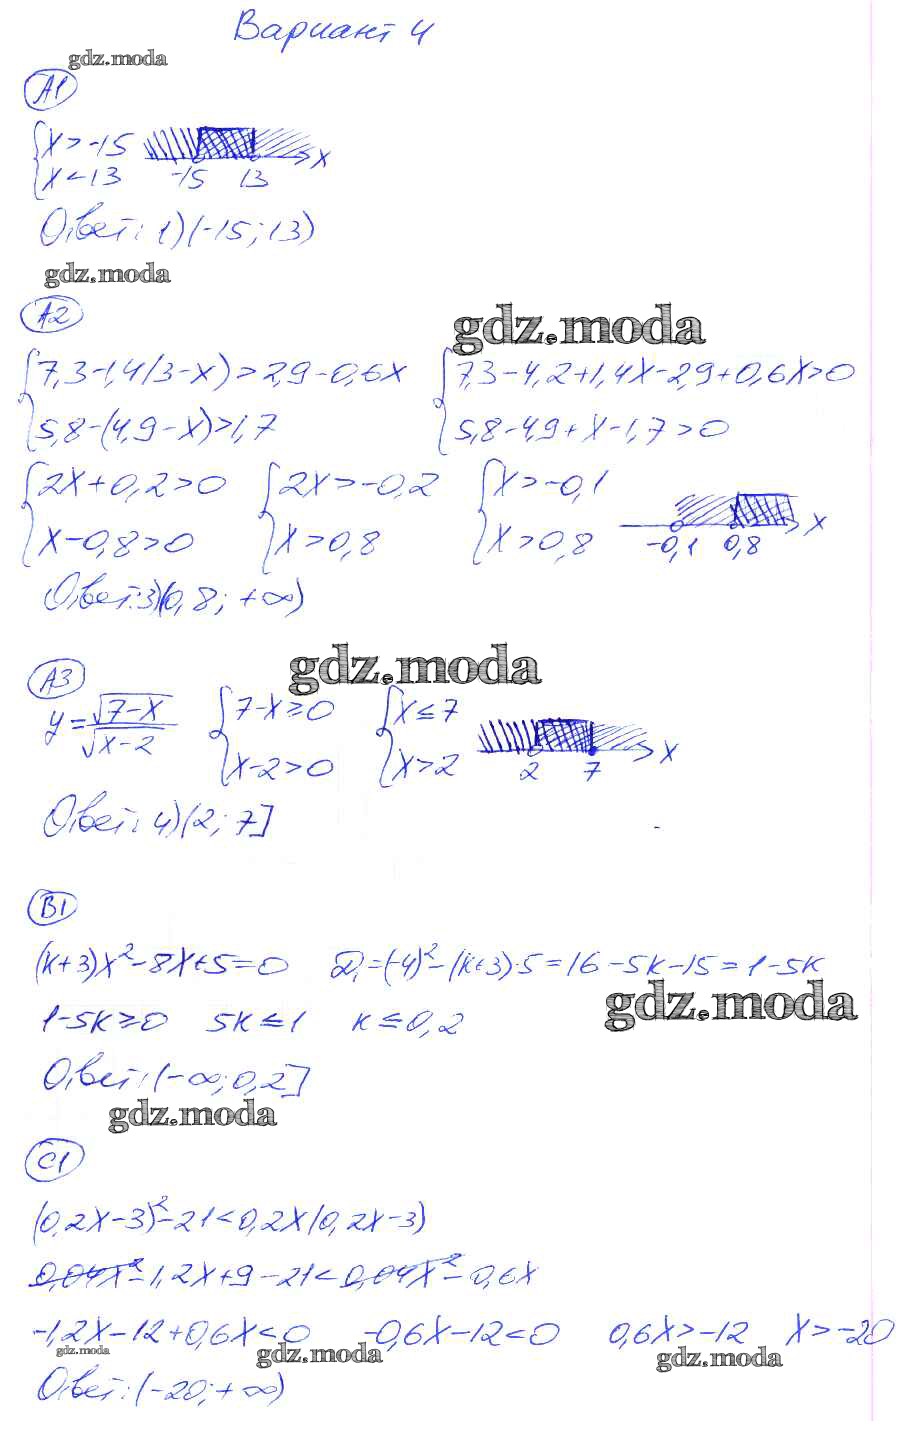 Вариант 4
gdz.moda
А1
{x>-15
{x<13
-15 13 x
Ответ: 1) (-15; 13)
gdz.moda
А2
gdz.moda
{7,3-1,4(3-x)>2,9-0,6x {7,3-4,2+1,4x-2,9+0,6x>0
{5,8-(4,9-x)>1,7 {5,8-4,9+x-1,7>0
{2x+0,2>0 {2x>-0,2 {x>-0,1
{x-0,8>0 {x>0,8 {x>0,8 -0,1 0,8 x
Ответ: 3) (0,8; +∞)
gdz.moda
А3
y=√7-x/√x-2 {7-x≥0 {x≤7
{x-2>0 {x>2 2 7 x
Ответ: 4) (2; 7]
В1
(k+3)x²-8x+5=0 D₁=(-4)²-(k+3)·5=16-5k-15=1-5k
gdz.moda
1-5k≥0 5k≤1 k≤0,2
Ответ: (-∞; 0,2]
gdz.moda
С1
(0,2x-3)²-21<0,2x(0,2x-3)
0,04x²-1,2x+9-21<0,04x²-0,6x
-1,2x-12+0,6x<0 -0,6x-12<0 0,6x>-12 x>-20
gdz.moda gdz.moda gdz.moda
Ответ: (-20; +∞)